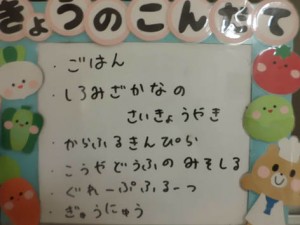 きょうのこんだて
・ごはん
・しろみざかなの
さいきょうやき
・からふるきんぴら
・こうやどうふのみそしる
・ぐれーぷふるーつ
・ぎゅうにゅう